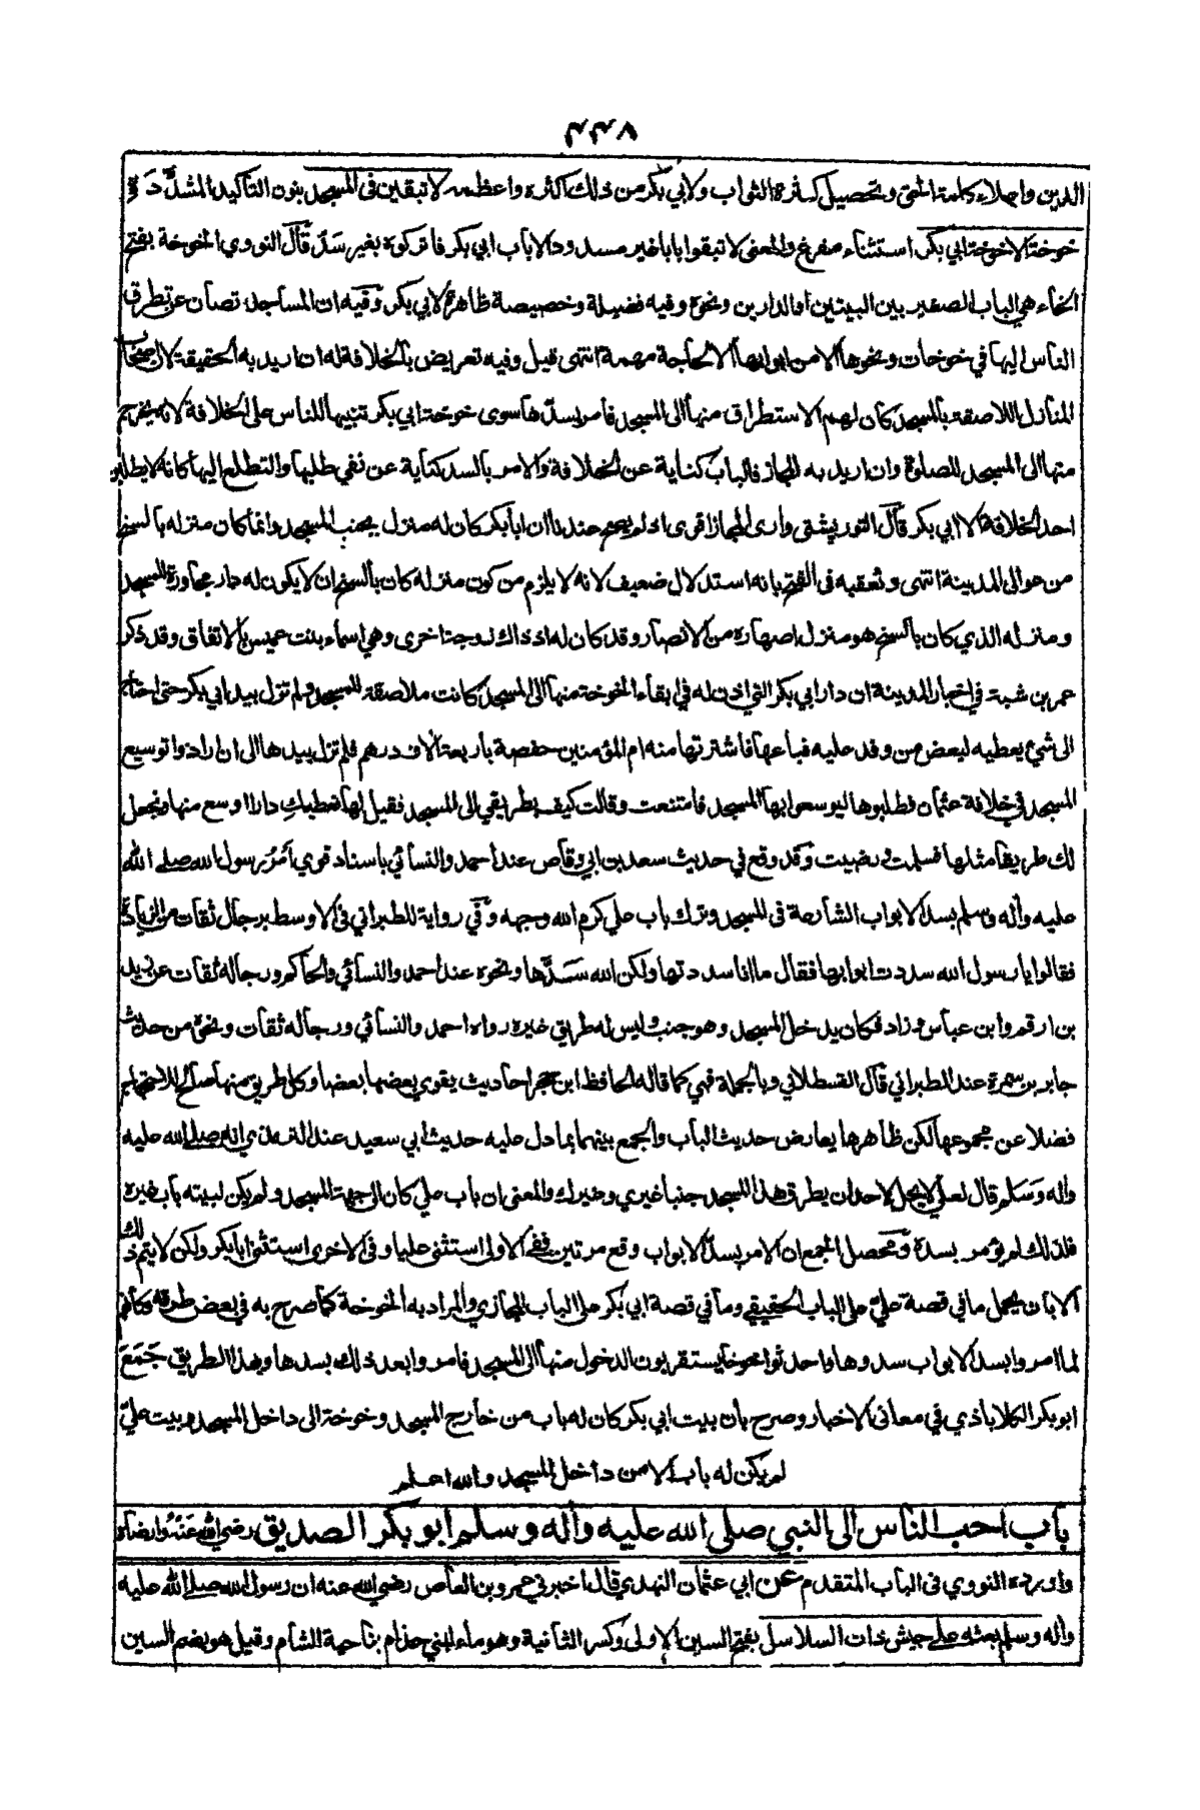 ٤٤٧
الدين واعلاء كلمة الحق وتحصيل كثرة الثواب ولابي بكر من ذلك اكثره واعظمه لا تبقين في المسجد بنون التاكيد المشدّدة
خوخة الا خوخة ابي بكر استثناء مفرغ والمعنى لا تبقوا بابا غير مسدود الا باب ابي بكر فاتركوه بغير سَدّ قال النووي الخوخة بفتح
الخاء هي الباب الصغير بين البيتين او الدارين ونحوه وفيه فضيلة وخصيصة ظاهرة لابي بكر وفيه ان المساجد تصان عن تطرق
الناس اليها في خوخات ونحوها الا من ابوابها الا لحاجة مهمة انتهى قيل وفيه تعريض بالخلافة له ان اريد به الحقيقة لان اصحاب
المنازل اللاصقة بالمسجد كان لهم الاستطراق منها الى المسجد فامر بسدّها سوى خوخة ابي بكر تنبيها للناس على الخلافة لانه يخرج
منها الى المسجد للصلوة وان اريد به المجاز فالباب كناية عن الخلافة والامر بالسد كناية عن نفي طلبها والتطلع اليها كانه لا يطلبن
احد الخلافة الا ابي بكر قال التوربشتي وارى المجاز اقوى اذ لم يصح عندنا ان ابا بكر كان له منزل بجنب المسجد وانما كان منزله بالسنح
من عوالي المدينة انتهى وتعقبه في الفتح بانه استدلال ضعيف لانه لا يلزم من كون منزله كان بالسنح ان لا يكون له دار مجاورة للمسجد
ومنزله الذي كان بالسنح هو منزل اصهاره من الانصار وقد كان له اذ ذاك زوجة اخرى وهي اسماء بنت عميس بالاتفاق وقد ذكر
عمر بن شبة في اخبار المدينة ان دار ابي بكر التي اذن له في ابقاء الخوخة منها الى المسجد كانت ملاصقة للمسجد ولم تزل بيد ابي بكر حتى احتاج
الى شيء يعطيه لبعض من وفد عليه فباعها فاشترتها منه ام المؤمنين حفصة باربعة آلاف درهم فلم تزل بيدها الى ان ارادوا توسيع
المسجد في خلافة عثمان فطلبوها ليوسعوا بها المسجد فامتنعت وقالت كيف بطريقي الى المسجد فقيل لها نعطيكِ دارا اوسع منها ونجعل
لك طريقا مثلها فسلمت ورضيت وقد وقع في حديث سعد بن ابي وقاص عند احمد والنسائي باسناد قوي اَمَرَ رسول الله صلى الله
عليه وآله وسلم بسد الابواب الشارعة في المسجد وترك باب علي كرم الله وجهه وفي رواية للطبراني في الاوسط برجال ثقات من الزيادة
فقالوا يا رسول الله سددت ابوابها فقال ما انا سددتها ولكن الله سَدَّها ونحوه عند احمد والنسائي والحاكم ورجاله ثقات عن زيد
بن ارقم وابن عباس وزاد فكان يدخل المسجد وهو جنب وليس له طريق غيره رواه احمد والنسائي ورجاله ثقات ونحوه من حديث
جابر بن سمرة عند الطبراني قال القسطلاني وبالجملة فهي كما قاله الحافظ ابن حجر احاديث يقوي بعضها بعضا وكل طريق منها صالح للاحتجاج
فضلا عن مجموعها لكن ظاهرها يعارض حديث الباب والجمع بينهما بما دل عليه حديث ابي سعيد عند الترمذي انه صلى الله عليه
وآله وَسَلم قال لعلي لا يحل لاحد ان يطرق هذا المسجد جنبا غيري وغيرك والمعنى ان باب علي كان الى جهة المسجد ولم يكن لبيته باب غيره
فلذلك لم يؤمر بسده ومحصل الجمع ان الامر بسدّ الابواب وقع مرتين ففي الاولى استثنى عليا وفي الاخرى استثنى ابا بكر ولكن لا يتم ذلك
الا بان يحمل ما في قصة عليّ على الباب الحقيقي وما في قصة ابي بكر على الباب المجازي والمراد به الخوخة كما صرح به في بعض طرقه وكانهم
لما امروا بسد الابواب سدوها واحدثوا خوخا يستقربون الدخول منها الى المسجد فامروا بعد ذلك بسدها وبهذا الطريق جَمَعَ
ابو بكر الكلاباذي في معاني الاخبار وصرح بان بيت ابي بكر كان له باب من خارج المسجد وخوخة الى داخل المسجد وبيت عليّ
لم يكن له باب الا من داخل المسجد والله اعلم
باب احب الناس الى النبي صلى الله عليه وآله وسلم ابو بكر الصديق رضي الله عَنْهُ وارضاه
واورده النووي في الباب المتقدم عن ابي عثمان النهدي قال اخبرني عمرو بن العاص رضي الله عنه ان رسول الله صلى الله عليه
وآله وسلم بعثه على جيش ذات السلاسل بفتح السين الاولى وكسر الثانية وهو ماء لبني جذام بناحية الشام وقيل هو بضم السين